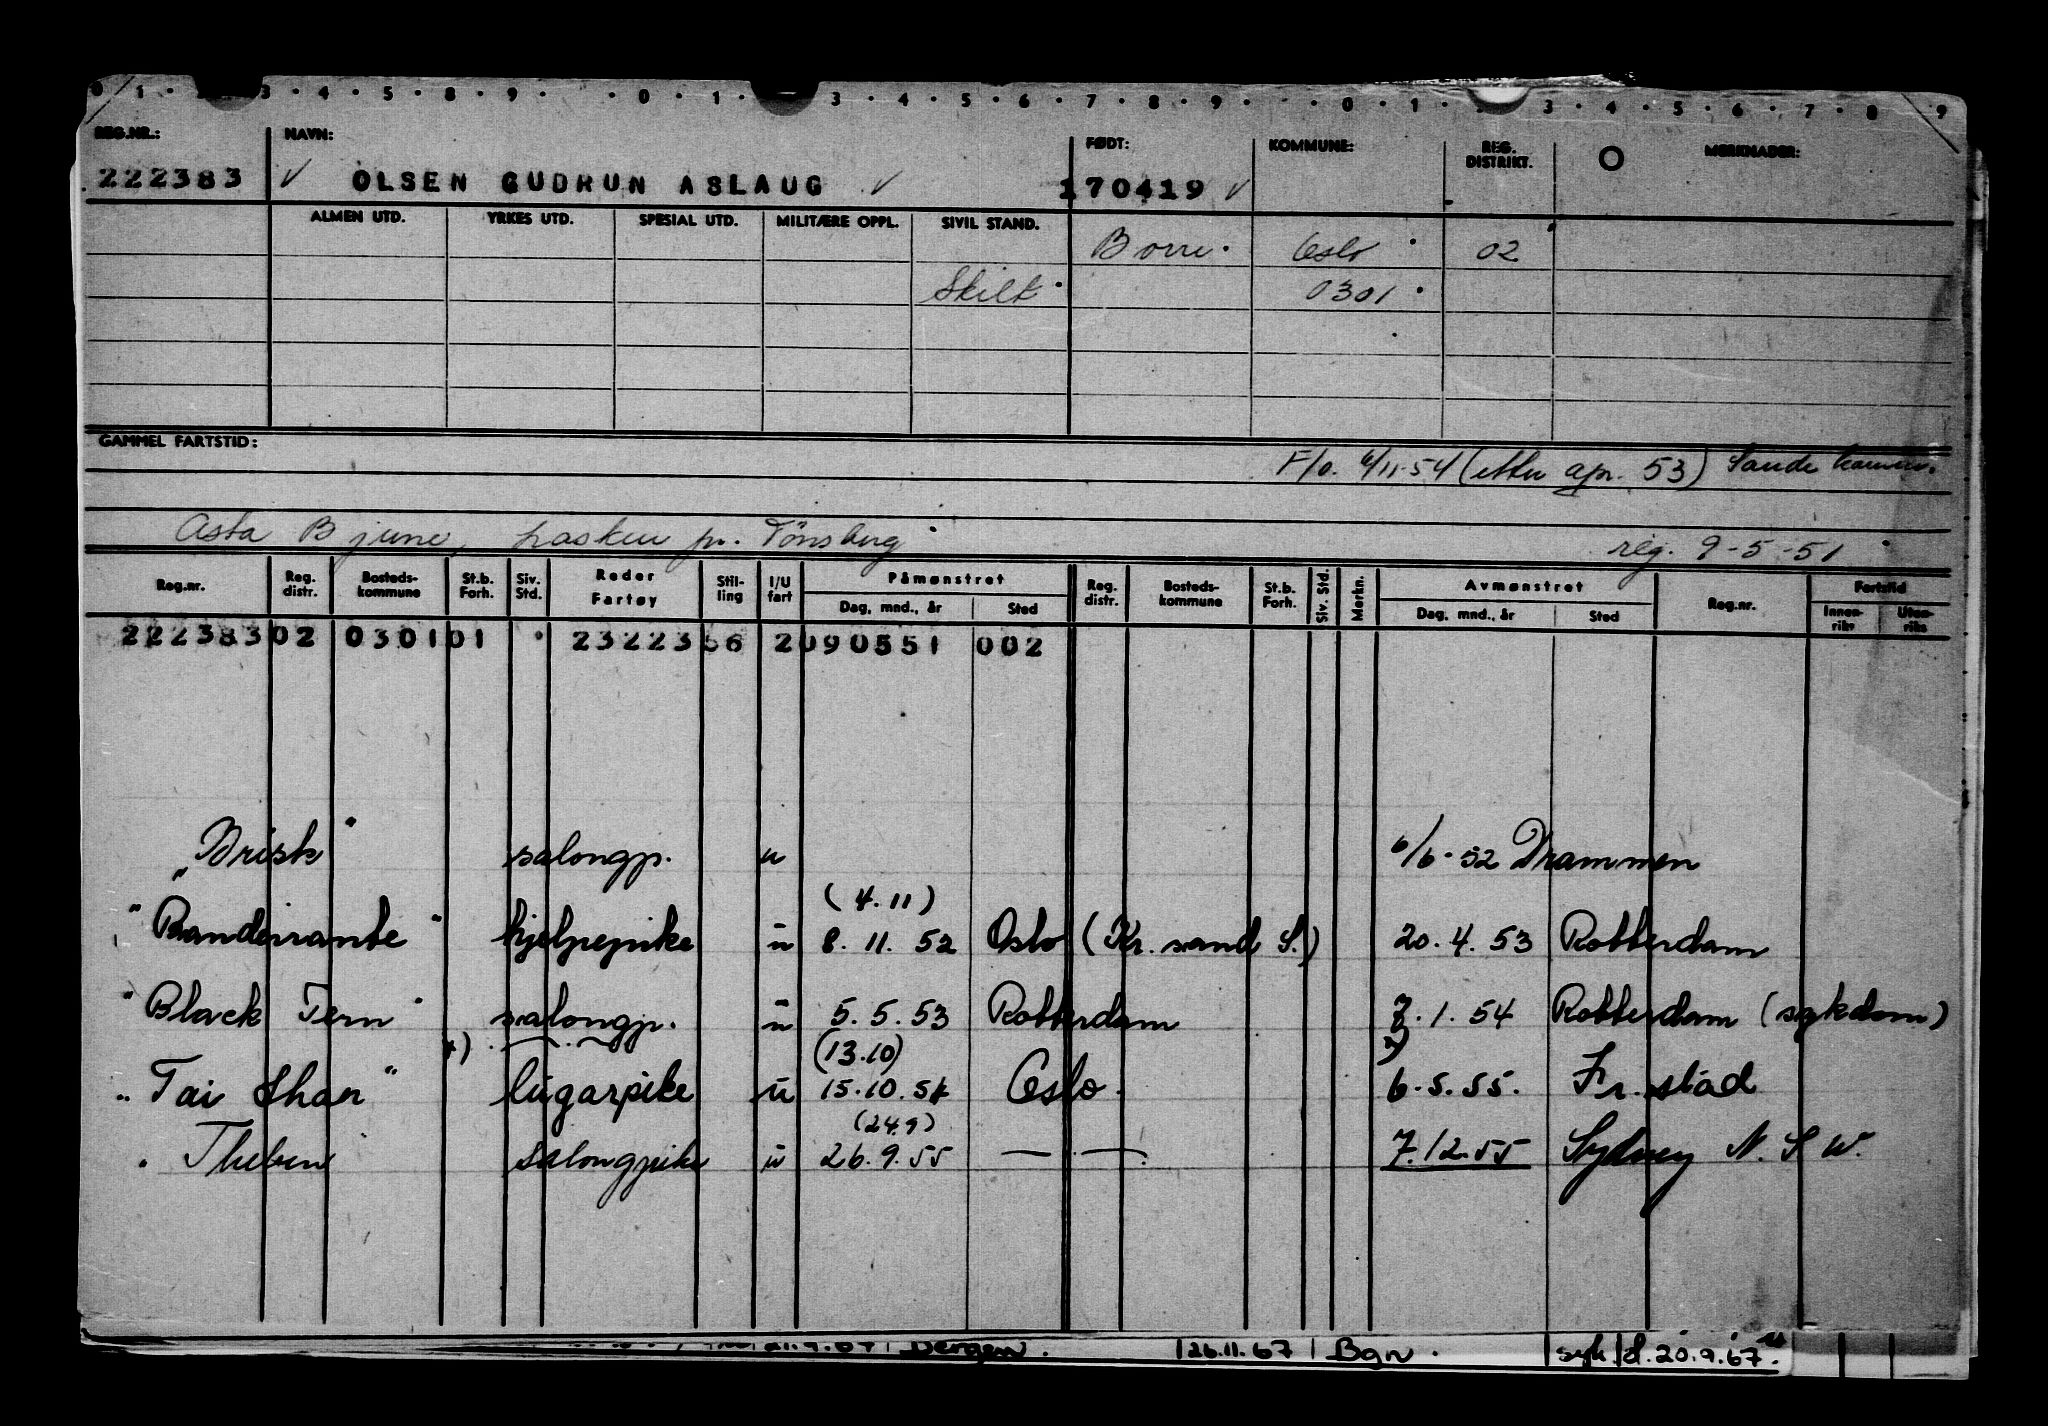 0 1 · 3 · 4 · 5 · 8 · 9 · · 0 · 1 · 3 · 4 · 5 · 6 · 7 · 8 · 9 · · 0 · 1 · 3 · 4 · 5 · 6 · 7 · 8 9
REG.NR.: NAVN: FØDT: KOMMUNE: REG. DISTRIKT. O MERKNADER:
222383 ✓ OLSEN GUDRUN ASLAUG ✓ 170419 ✓
ALMEN UTD. YRKES UTD. SPESIAL UTD. MILITÆRE OPPL. SIVIL STAND.
Borre. Oslo 02
Skilt 0301
GAMMEL FARTSTID:
F/o. 6/11-54 (etter apr. 53) Sande komm.
Asta Bjune, pr. Tönsberg
reg. 9-5-51
Reg.nr. Reg. distr. Bosteds- kommune St.b. Forh. Siv. Std. Reder Fartøy Stil- ling I/U fart Påmønstret Reg. distr. Bosteds- kommune St.b. Forh. Siv. Std. Merkn. Avmønstret Reg.nr. Fartstid
Dag, mnd., år Sted Dag, mnd., år Sted Innen- riks Uten- riks
222383 02 0301 01 23223 56 2 090551 002
"Brisk" salongp. u 6/6-52 Drammen
(4.11)
"Bandeirante" hjelpepike u 8.11.52 Oslo (Kr.sand S.) 20.4.53 Rotterdam
"Black Tern" salongp. u 5.5.53 Rotterdam 7.1.54 Rotterdam (sykdom)
(13.10)
"Tai Shan" lugarpike u 15.10.54 Oslo. 6.5.55. Fr.stad
(24.9)
" Theben salongpike u 26.9.55 — " — 7.12.55 Sydney N.S.W.
Bergen. 26.11.67 Bgn. syk d. 20.9.67.